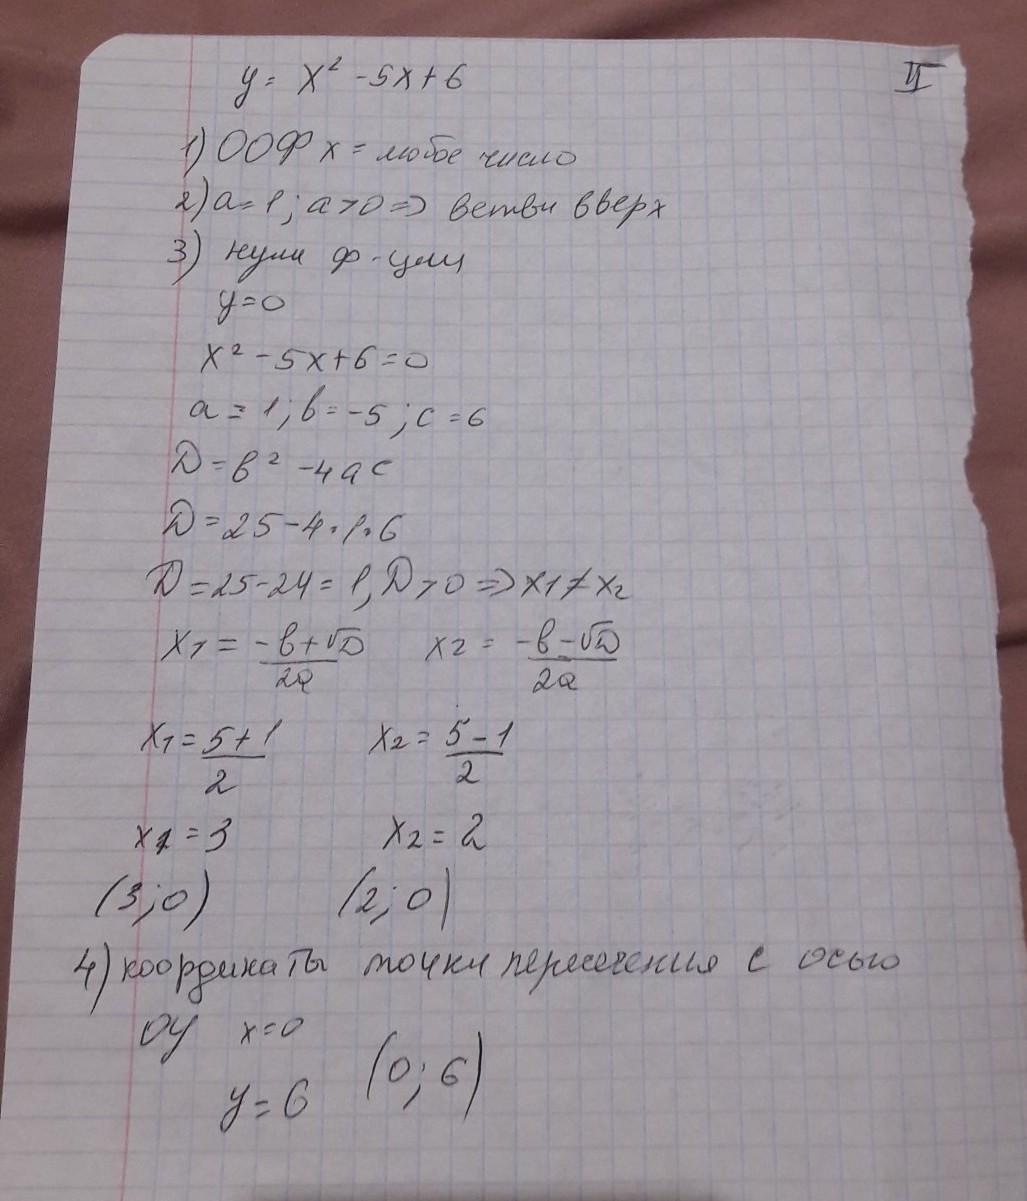 II
y = x² - 5x + 6
1) ООФ x = любое число
2) a = 1; a > 0 => ветви вверх
3) нули ф-ции
y = 0
x² - 5x + 6 = 0
a = 1; b = -5; c = 6
D = b² - 4ac
D = 25 - 4·1·6
D = 25 - 24 = 1, D > 0 => x₁ ≠ x₂
x₁ = (-b + √D)/2a x₂ = (-b - √D)/2a
x₁ = (5 + 1)/2 x₂ = (5 - 1)/2
x₁ = 3 x₂ = 2
(3; 0) (2; 0)
4) координаты точки пересечения с осью
OY x = 0
y = 6 (0; 6)